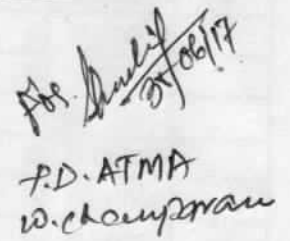 For.
30/06/17
P.D. ATMA
W. Champaran